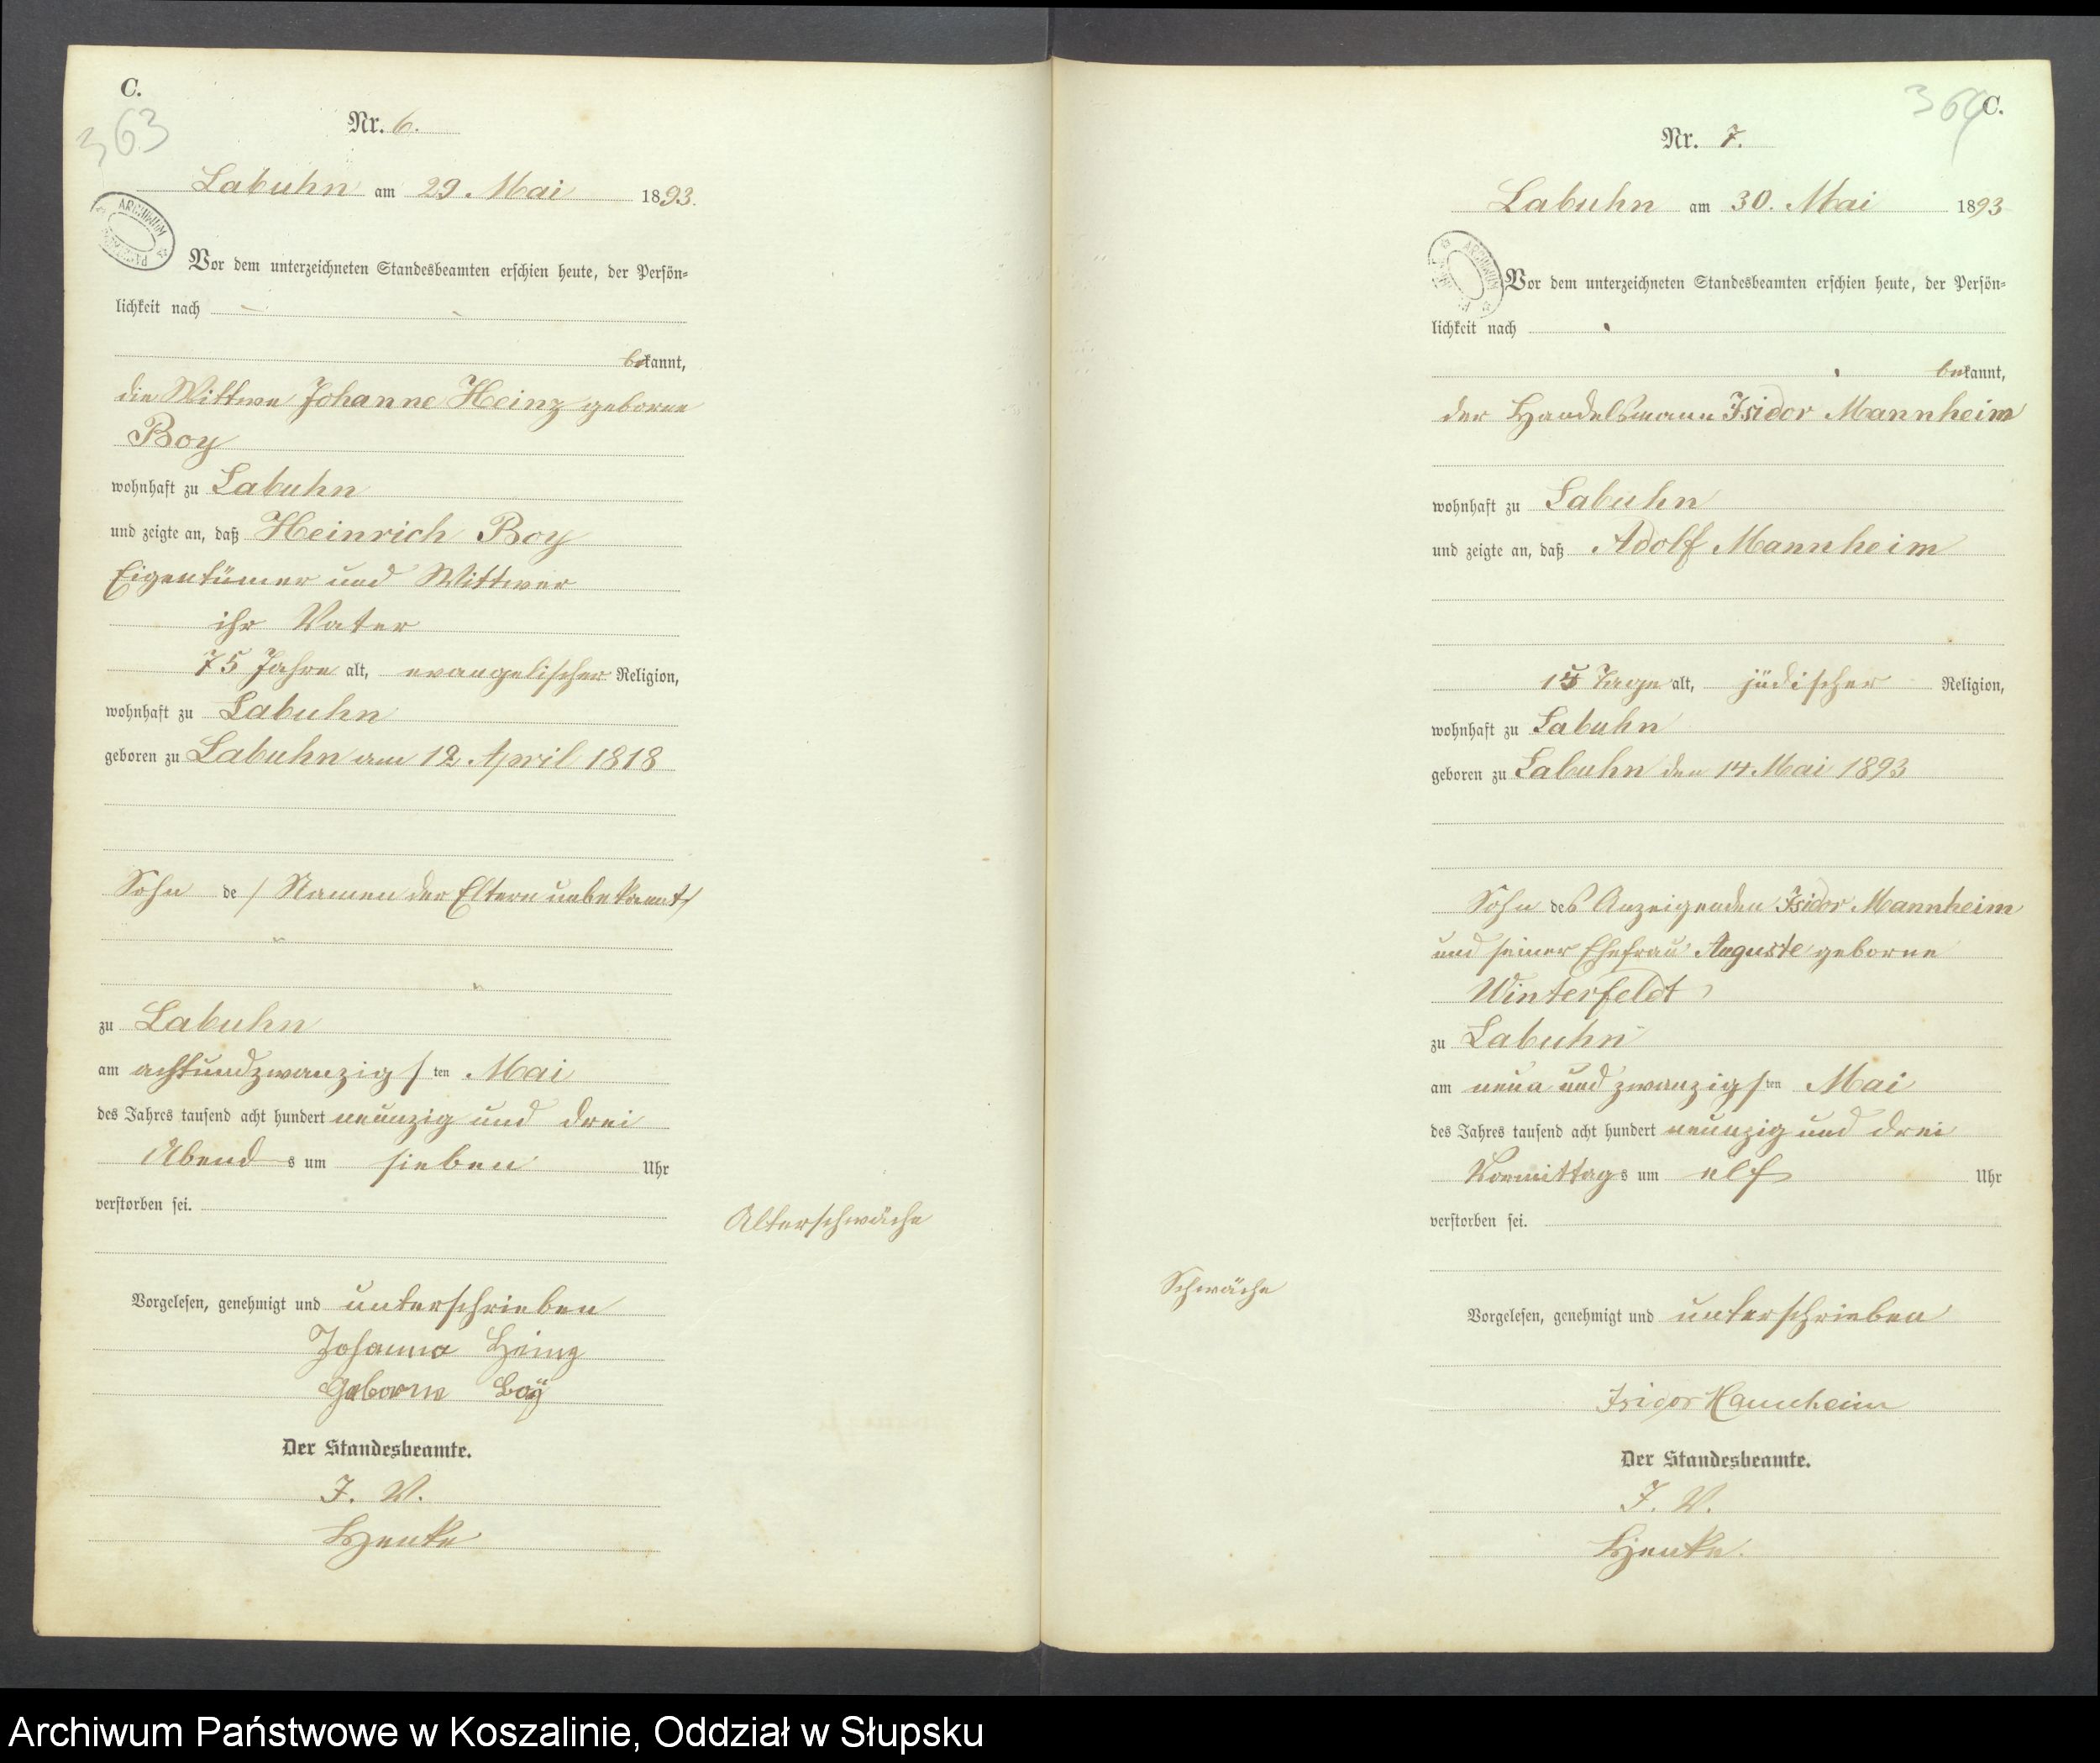 C.
363
Nr. 6.
Labuhn am 29. Mai 1893.
ARCHIWUM
Vor dem unterzeichneten Standesbeamten erschien heute, der Persön=
lichkeit nach
bekannt,
die Wittwe Johanne Heinz geborne
Boy
wohnhaft zu Labuhn
und zeigte an, daß Heinrich Boy
Eigentümer und Wittwer
ihr Vater
75 Jahre alt, evangelischer Religion,
wohnhaft zu Labuhn
geboren zu Labuhn am 12. April 1818
Sohn de / Namen der Eltern unbekannt /
zu Labuhn
am achtundzwanzigsten Mai
des Jahres tausend acht hundert neunzig und drei
Abends um sieben Uhr
verstorben sei.
Alterschwäche
Vorgelesen, genehmigt und unterschrieben
Johanna Heinz
Geborne Boÿ
Der Standesbeamte.
J. V.
Henke
364
C.
Nr. 7.
Labuhn am 30. Mai 1893
ARCHIWUM
Vor dem unterzeichneten Standesbeamten erschien heute, der Persön=
lichkeit nach
bekannt,
der Handelsmann Isidor Mannheim
wohnhaft zu Labuhn
und zeigte an, daß Adolf Mannheim
15 Tage alt, jüdischer Religion,
wohnhaft zu Labuhn
geboren zu Labuhn den 14. Mai 1893
Sohn des Anzeigenden Isidor Mannheim
und seiner Ehefrau Auguste geborne
Winterfeldt
zu Labuhn
am neun und zwanzigsten Mai
des Jahres tausend acht hundert neunzig und drei
Vormittags um elf Uhr
verstorben sei.
Schwäche
Vorgelesen, genehmigt und unterschrieben
Isidor Mannheim
Der Standesbeamte.
J. V.
Henke.
Archiwum Państwowe w Koszalinie, Oddział w Słupsku